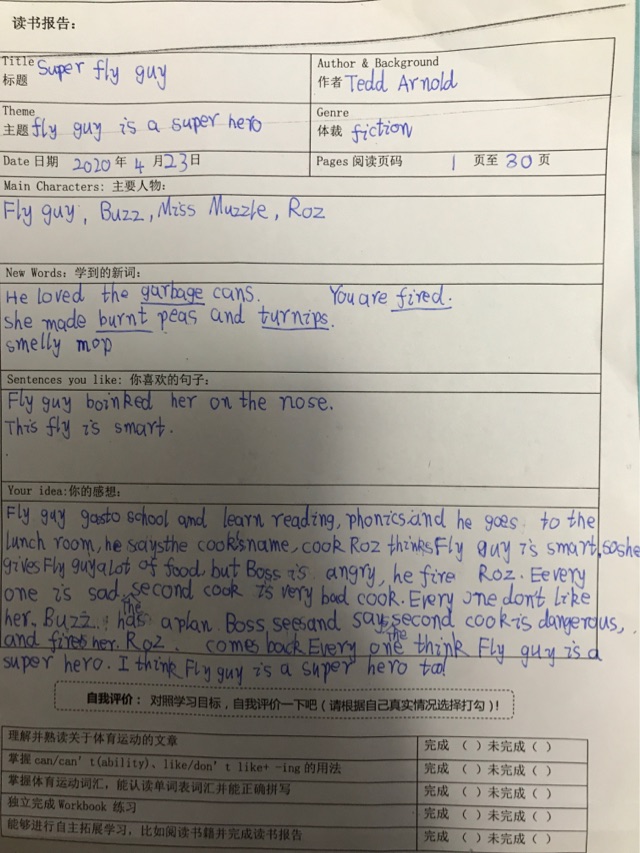 读书报告:
Title Super fly guy
标题
Author & Background
作者 Tedd Arnold
Theme
主题 fly guy is a super hero
Genre
体裁 fiction
Date 日期 2020 年 4 月 23 日
Pages 阅读页码 1 页至 30 页
Main Characters: 主要人物:
Fly guy, Buzz, Miss Muzzle, Roz
New Words: 学到的新词:
He loved the garbage cans. You are fired.
she made burnt peas and turnips.
smelly mop
Sentences you like: 你喜欢的句子:
Fly guy boinked her on the nose.
This fly is smart.
Your idea:你的感想:
Fly guy goes to school and learn reading, phonics. and he goes to the
lunch room, he says the cook's name, cook Roz thinks Fly guy is smart, so she
gives Fly guy a lot of food, but Boss is angry, he fire Roz. Eevery
one is sad. second cook is very bad cook. Every one dont like
her. Buzz has a plan. Boss sees and say the second cook is dangerous,
and fires her. Roz comes back Every one think the Fly guy is a
super hero. I think Fly guy is a super hero too!
自我评价: 对照学习目标,自我评价一下吧(请根据自己真实情况选择打勾)!
理解并熟读关于体育运动的文章 完成 ( ) 未完成 ( )
掌握 can/can't(ability)、like/don't like+ -ing 的用法 完成 ( ) 未完成 ( )
掌握体育运动词汇,能认读单词表词汇并能正确拼写 完成 ( ) 未完成 ( )
独立完成 Workbook 练习 完成 ( ) 未完成 ( )
能够进行自主拓展学习,比如阅读书籍并完成读书报告 完成 ( ) 未完成 ( )